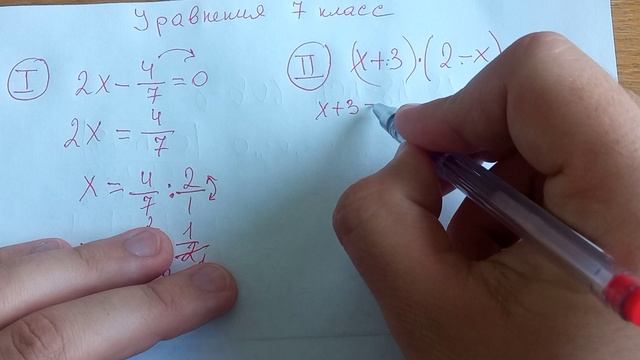 Уравнения 7 класс
I
2x - 4/7 = 0
2x = 4/7
x = 4/7 : 2/1
1/2
II
(x+3)·(2-x)
x+3=